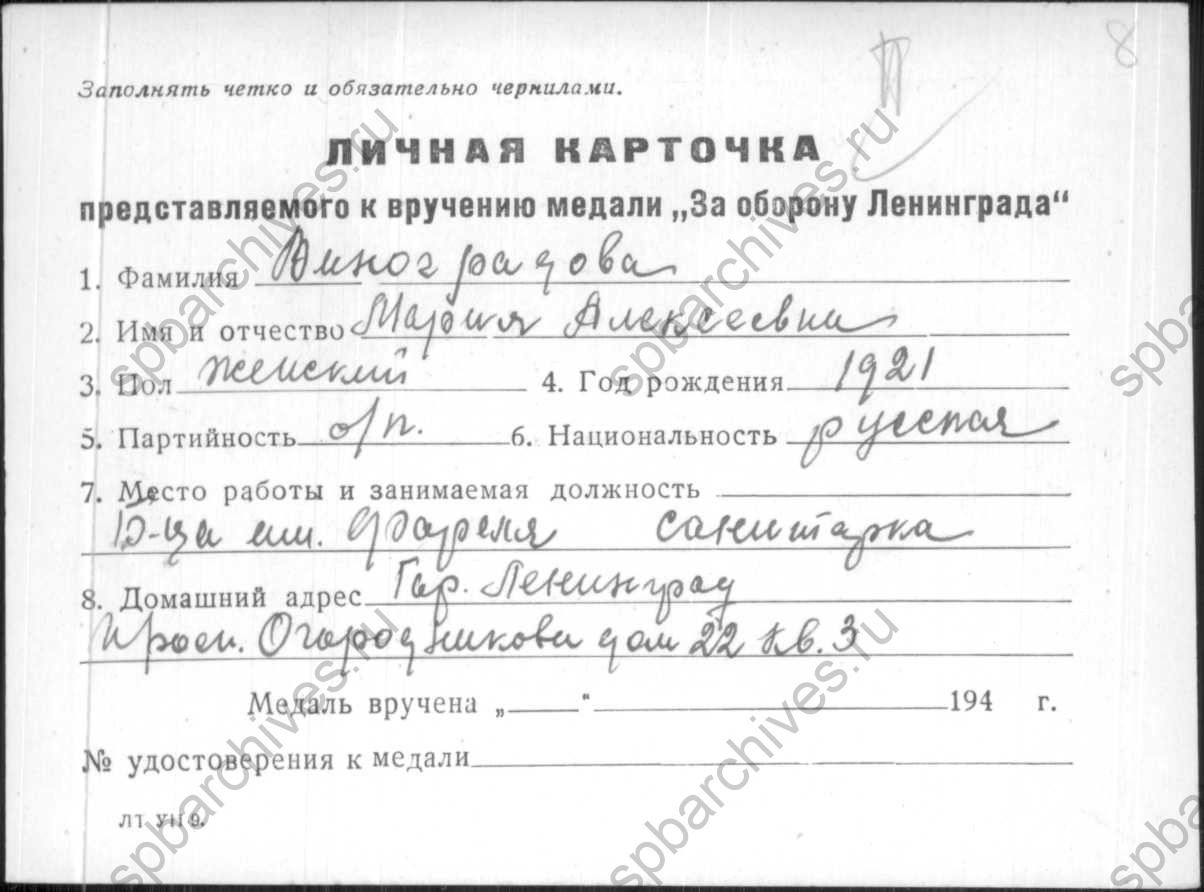 8
Заполнять четко и обязательно чернилами.
ЛИЧНАЯ КАРТОЧКА
представляемого к вручению медали „За оборону Ленинграда“
1. Фамилия Виноградова
2. Имя и отчество Мария Алексеевна
3. Пол женский 4. Год рождения 1921
5. Партийность б/п. 6. Национальность русская
7. Место работы и занимаемая должность
Б-ца им. Фореля санитарка
8. Домашний адрес Гор. Ленинград
Просп. Огородникова дом 22 кв. 3
Медаль вручена „ “ 194 г.
№ удостоверения к медали
spbarchives.ru